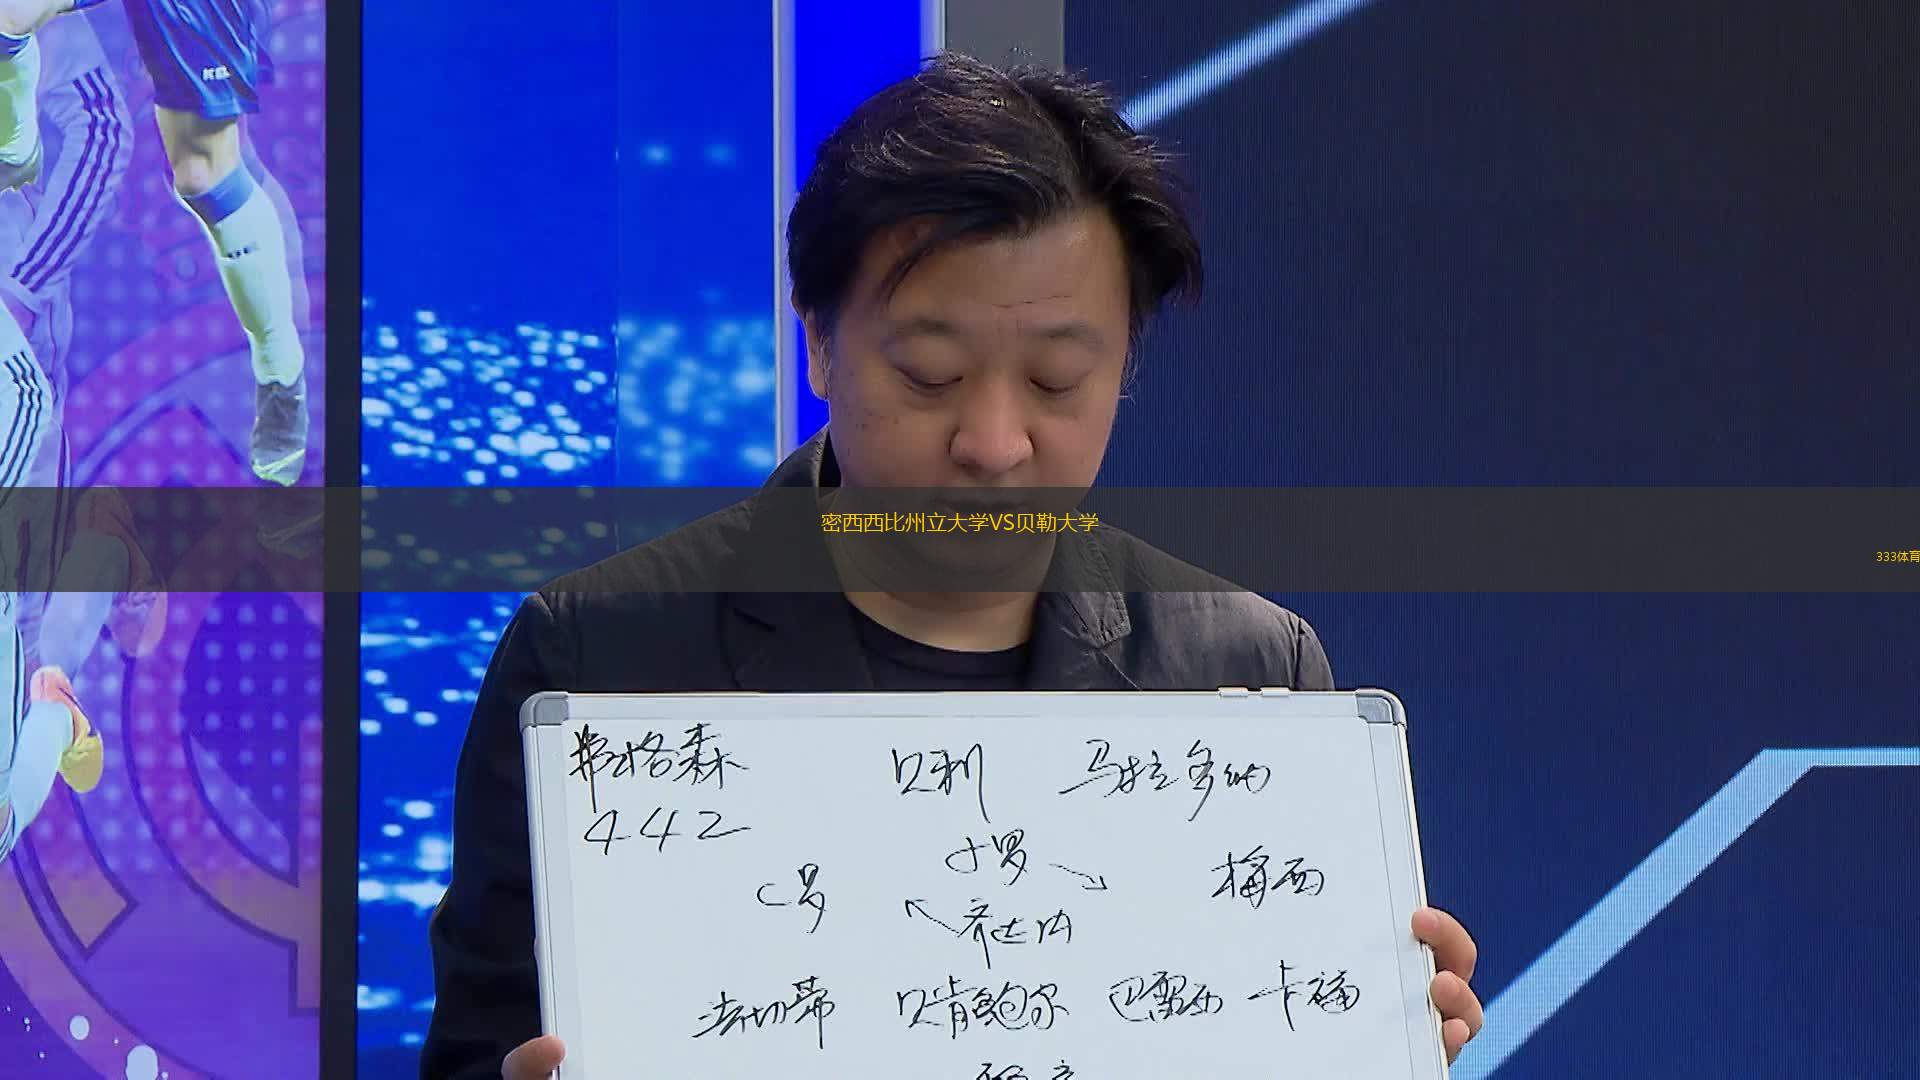 密西西比州立大学VS贝勒大学
333体育
弗格森 贝利 马拉多纳
442
小罗
C罗 梅西
齐达内
法切蒂 贝肯鲍尔 巴雷西 卡福